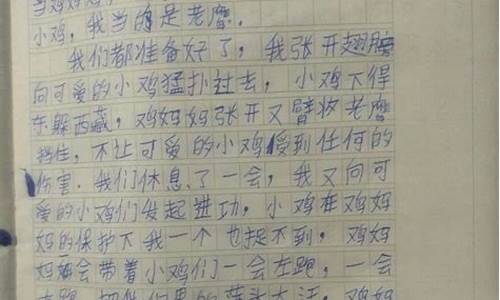 当鸡妈妈,
小鸡,我当的是老鹰.
我们都准备好了,我张开翅膀
向可爱的小鸡猛扑过去,小鸡下得
东躲西藏,鸡妈妈张开又臂将老鹰
挡住,不让可爱的小鸡受到任何的
伤害.我们休息了一会,我又向可
爱的小鸡们发起进功,小鸡在鸡妈
妈的保护下我一个也捉不到,鸡妈
妈会带着小鸡们一会左跑,一会
右跑,把